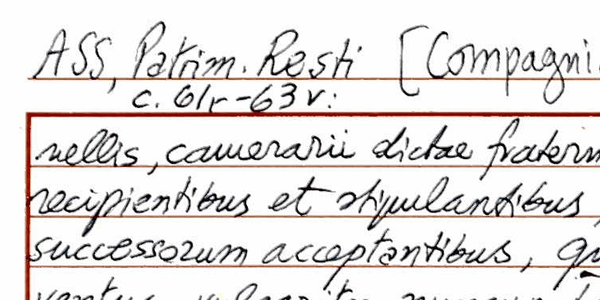 ASS, Patrim. Resti [Compagni
c. 61r-63v:
nellis, camerarii dictae fratern
recipientibus et stipulantibus,
successorum acceptantibus, qu